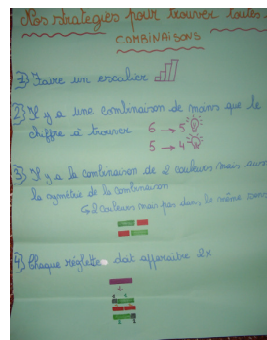 Nos strategies pour trouver toutes
COMBINAISONS
1) Faire un escalier
2) Il y a une combinaison de moins que le
chiffre à trouver 6 → 5
5 → 4
3) Il y a la combinaison de 2 couleurs mais aussi
la symétrie de la combinaison
↳ 2 couleurs mais pas dans le même sens
4) Chaque réglette doit apparaitre 2x